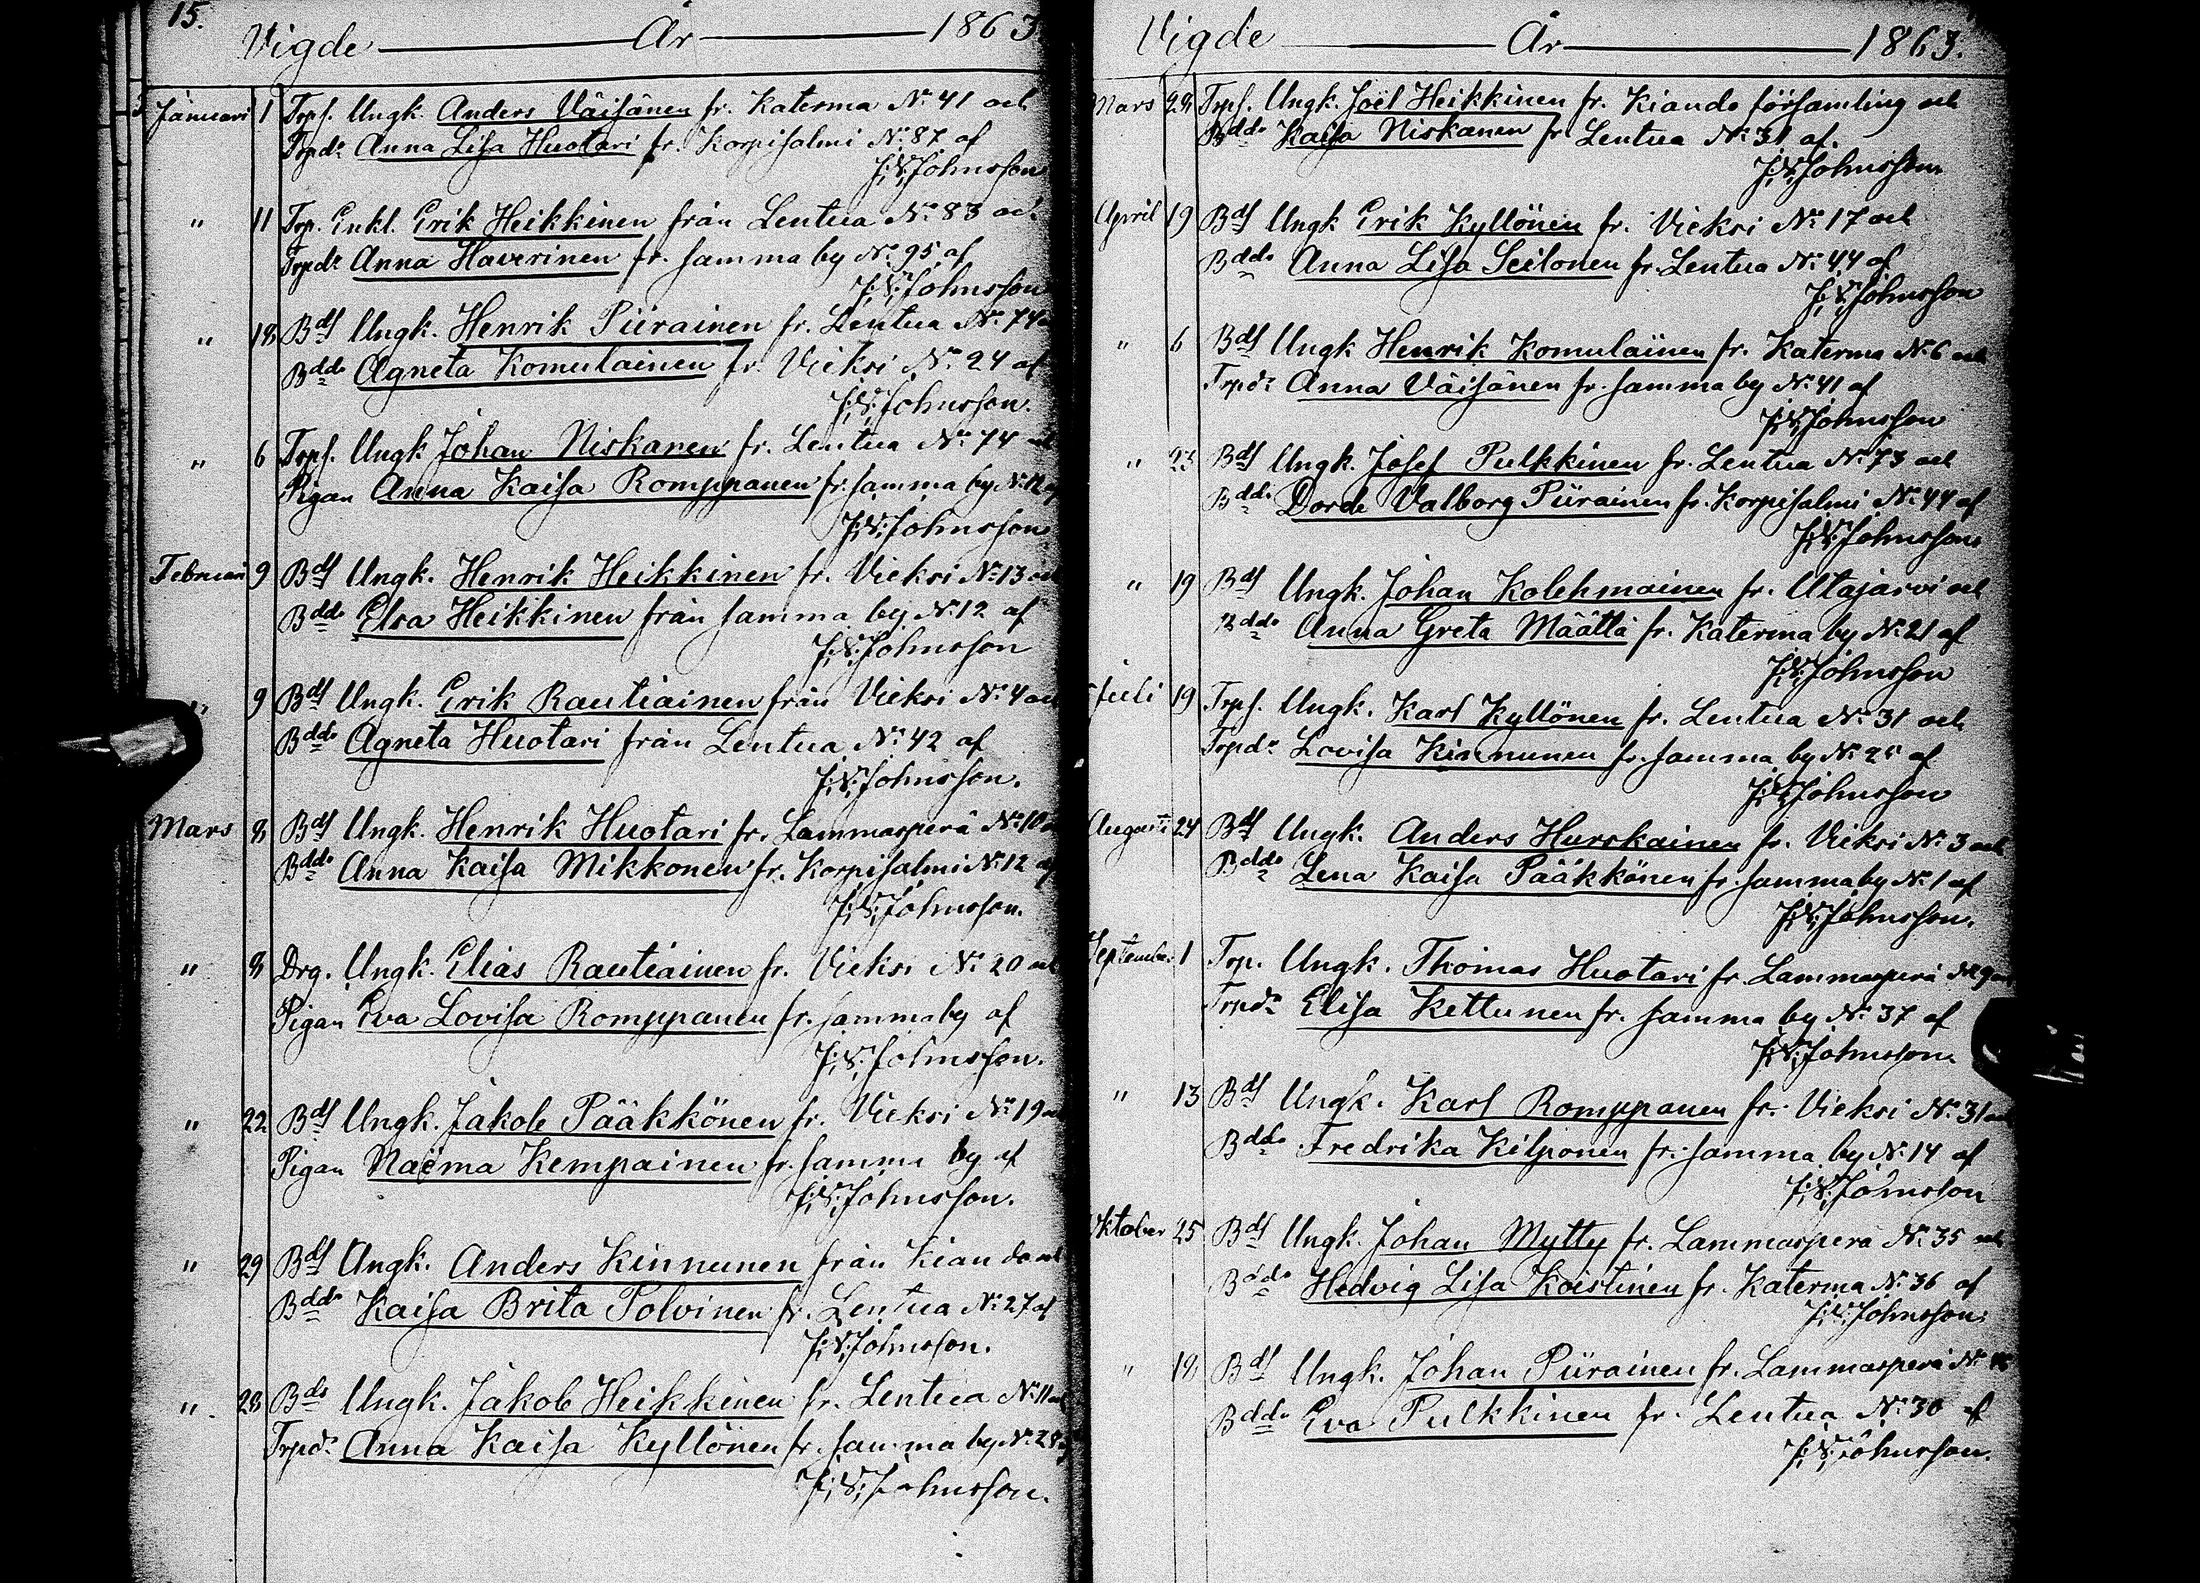 15.
Vigde År 1863.
Januari 1 Trps. Ungk. Anders Väisänen fr. Katerma No 41 och
Trpdr Anna Lisa Huotari fr. Korpisalmi No 87 af
J. V. Johnsson
" 11 Trp. Enkl. Erik Heikkinen från Lentua No 83 och
Trpdr Anna Haverinen fr. samma by No 95 af
J. V. Johnsson
" 18 Bds Ungk. Henrik Piirainen fr. Lentua No 74
Bddr Agneta Komulainen fr. Vieksi No 24 af
J. V. Johnsson.
" 6 Trps. Ungk Johan Niskanen fr. Lentua No 74 och
Pigan Anna Kaisa Romppanen fr. samma by No 12 af
J. V. Johnsson
Februari 9 Bds Ungk. Henrik Heikkinen fr. Vieksi No 13 och
Bddr Elsa Heikkinen från samma by No 12 af
J. V. Johnsson
" 9 Bds Ungk. Erik Rautiainen från Vieksi No 4 och
Bddr Agneta Huotari från Lentua No 42 af
J. V. Johnsson.
Mars 8 Bds Ungk. Henrik Huotari fr. Lammasperä No 10
Bddr Anna Kaisa Mikkonen fr. Korpisalmi No 12 af
J. V. Johnsson.
" 8 Drg. Ungk. Elias Rautiainen fr. Vieksi No 20 och
Pigan Eva Lovisa Romppanen fr. samma by af
J. V. Johnsson.
" 22 Bds Ungk. Jakob Pääkkönen fr. Vieksi No 19 och
Pigan Naëma Kempainen fr. samma by af
J. V. Johnsson.
" 29 Bds Ungk. Anders Kinnunen från Kiando och
Bddr Kaisa Brita Polvinen fr. Lentua No 27 af
J. V. Johnsson.
" 28 Bds Ungk. Jakob Heikkinen fr. Lentua No 11 och
Trpdr Anna Kaisa Kyllönen fr. samma by No 28
J. V. Johnsson.
Vigde År 1863.
Mars 28 Trps. Ungk. Joël Heikkinen fr. Kiando församling och
Bddr Kaisa Niskanen fr Lentua No 31 af.
J. V. Johnsson.
April 19 Bds Ungk Erik Kyllönen fr. Vieksi No 17 och
Bddr Anna Lisa Seilonen fr. Lentua No 44 af
J. V. Johnsson
" 6 Bds Ungk Henrik Komulainen fr. Katerma No 6 och
Trpdr Anna Väisänen fr. samma by No 41 af
J. V. Johnsson
" 23 Bds Ungk. Josef Pulkkinen fr. Lentua No 73 och
Bddr Dorde Valborg Piirainen fr. Korpisalmi No 44 af
J. V. Johnsson.
" 19 Bds Ungk. Johan Kolehmainen fr. Utajärvi och
Bddr Anna Greta Määttä fr. Katerma by No 21 af
J. V. Johnsson
Juli 19 Trps. Ungk. Karl Kyllönen fr. Lentua No 31 och
Trpdr Lovisa Kinnunen fr. samma by No 25 af
J. V. Johnsson
Augusti 24 Bds Ungk. Anders Hurskainen fr. Vieksi No 3 och
Bddr Lena Kaisa Pääkkönen fr. samma by No 1 af
J. V. Johnsson.
September 1 Trp. Ungk. Thomas Huotari fr. Lammasperä No 9
Trpdr Elisa Kettunen fr. samma by No 37 af
J. V. Johnsson.
" 13 Bds Ungk. Karl Romppanen fr. Vieksi No 31 och
Bddr Fredrika Kilponen fr. samma by No 14 af
J. V. Johnsson
Oktober 25 Bds Ungk. Johan Mytty fr. Lammasperä No 35 och
Bddr Hedvig Lisa Koistinen fr. Katerma No 36 af
J. V. Johnsson.
" 18 Bds Ungk. Johan Piirainen fr. Lammasperä No
Bddr Eva Pulkkinen fr. Lentua No 30 af
J. V. Johnsson.